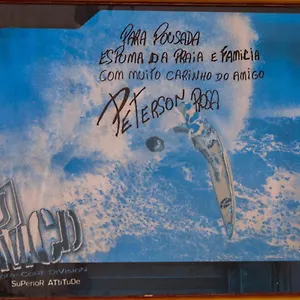 PARA POUSADA
ESPUMA DA PRAIA E FAMILIA
COM MUITO CARINHO DO AMIGO
PETERSON ROSA
SuPeRioR ATtiTuDe